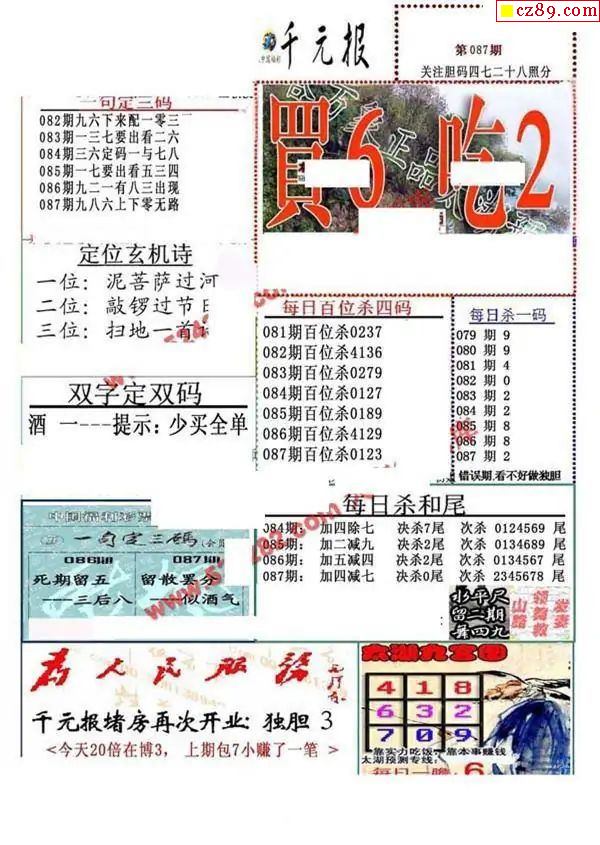 cz89.com
千元报
第087期
关注胆码四七二十八照分
一句定三码
082期九六下来配一零三
083期一三七要出看二六
084期三六定码一与七八
085期一七要出看五三四
086期九二一有八三出现
087期九八六上下零无路
買6吃2
定位玄机诗
一位：泥菩萨过河
二位：敲锣过节日
三位：扫地一首
每日百位杀四码
081期百位杀0237
082期百位杀4136
083期百位杀0279
084期百位杀0127
085期百位杀0189
086期百位杀4129
087期百位杀0123
每日杀一码
079 期 9
080 期 9
081 期 4
082 期 0
083 期 2
084 期 2
085 期 8
086 期 8
087 期 2
错误期,看不好做独胆
双字定双码
酒 一---提示：少买全单
中国福利彩票
一句定三码
086期
087期
死期留五
留散罢分
---三后八
---似酒气
每日杀和尾
084期： 加四除七 决杀7尾 次杀 0124569 尾
085期： 加二减九 决杀2尾 次杀 0134689 尾
086期： 加五减四 决杀2尾 次杀 0134567 尾
087期： 加四减七 决杀0尾 次杀 2345678 尾
水平尺
留二期
舞四九
为人民服务
千元报堵房再次开业：独胆 3
<今天20倍在博3， 上期包7小赚了一笔 >
太湖九宫图
4 1 8
6 3 2
7 0 9
靠实力吃饭，靠本事赚钱
太湖预测专线：
每日一胆 6